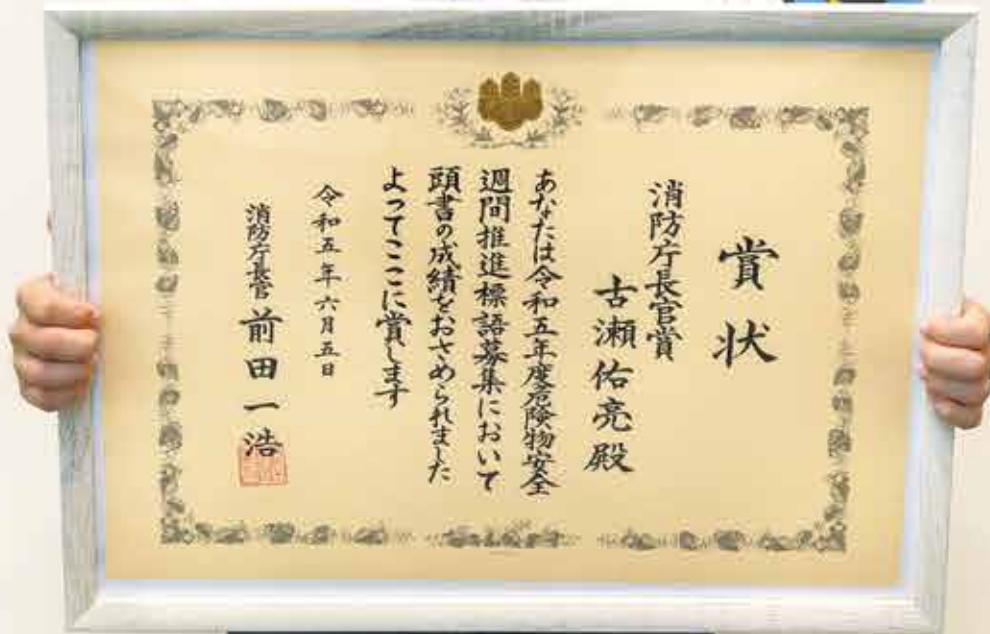 賞状
消防庁長官賞
古瀬佑亮殿
あなたは令和五年度危険物安全
週間推進標語募集において
頭書の成績をおさめられました
よってここに賞します
令和五年六月五日
消防庁長官 前田一浩